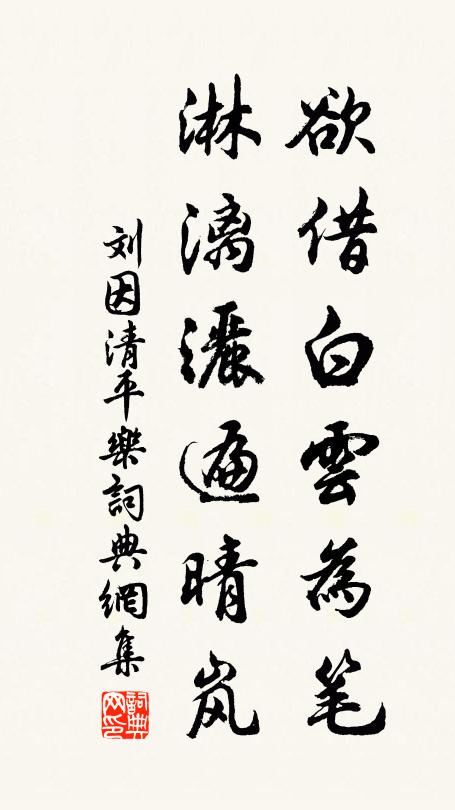 欲借白雲為笔
淋漓灑遍晴岚
刘因清平樂詞典網集
詞典网印